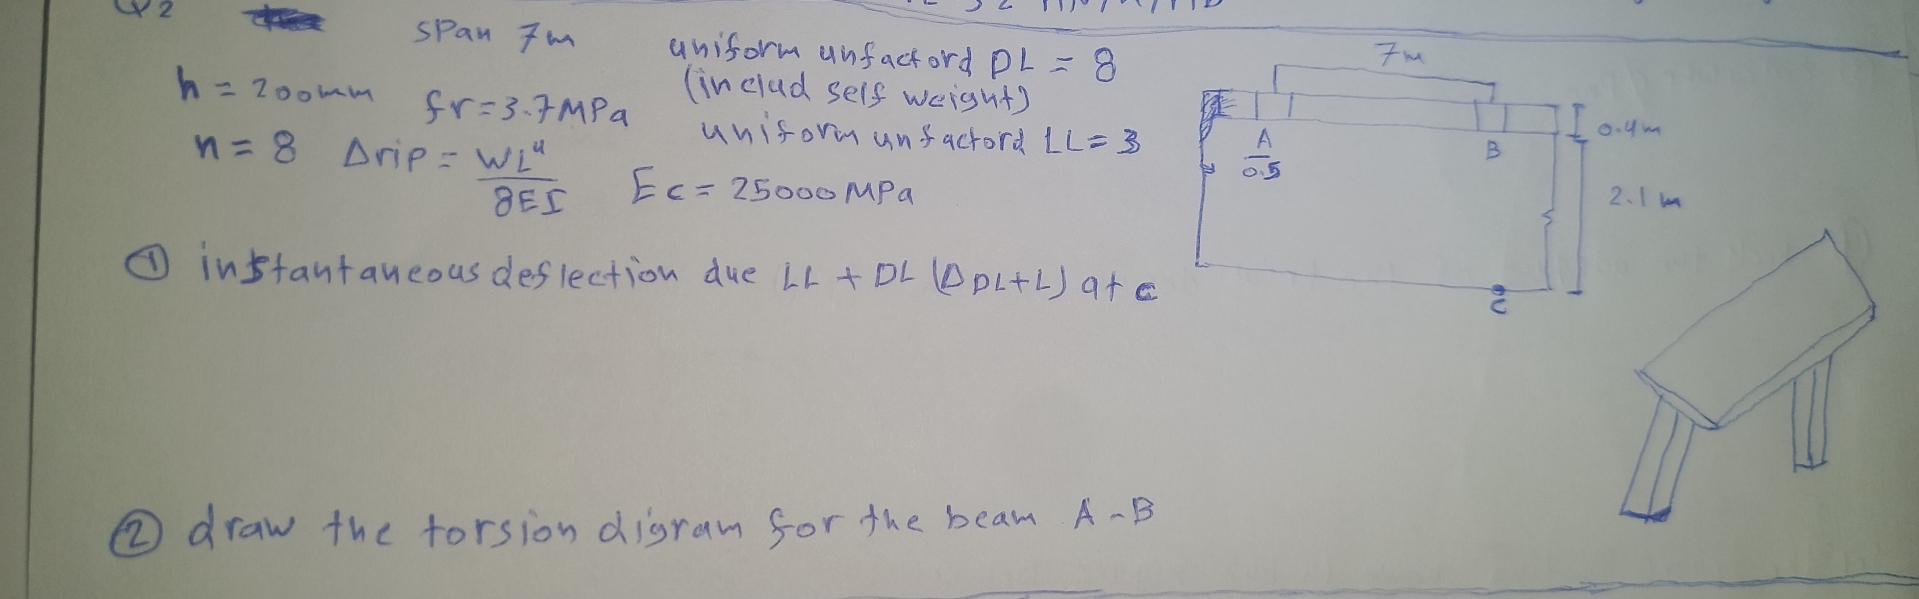 Q2
span 7m
uniform unfactord DL = 8
(includ self weight)
h = 200mm
fr = 3.7MPa
uniform unfactord LL = 3
n = 8 Δrip = WL⁴
8EI
Ec = 25000 MPa
7m
A
0.5
B
0.4m
2.1m
C
① instantaneous deflection due LL + DL (Δ DL+L) at c
② draw the torsion digram for the beam A-B